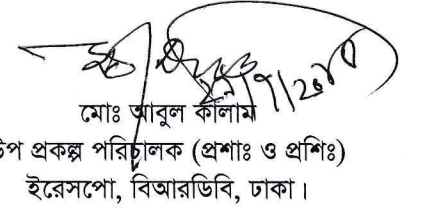 মোঃ আবুল কালাম
উপ প্রকল্প পরিচালক (প্রশাঃ ও প্রশিঃ)
ইরেসপো, বিআরডিবি, ঢাকা।